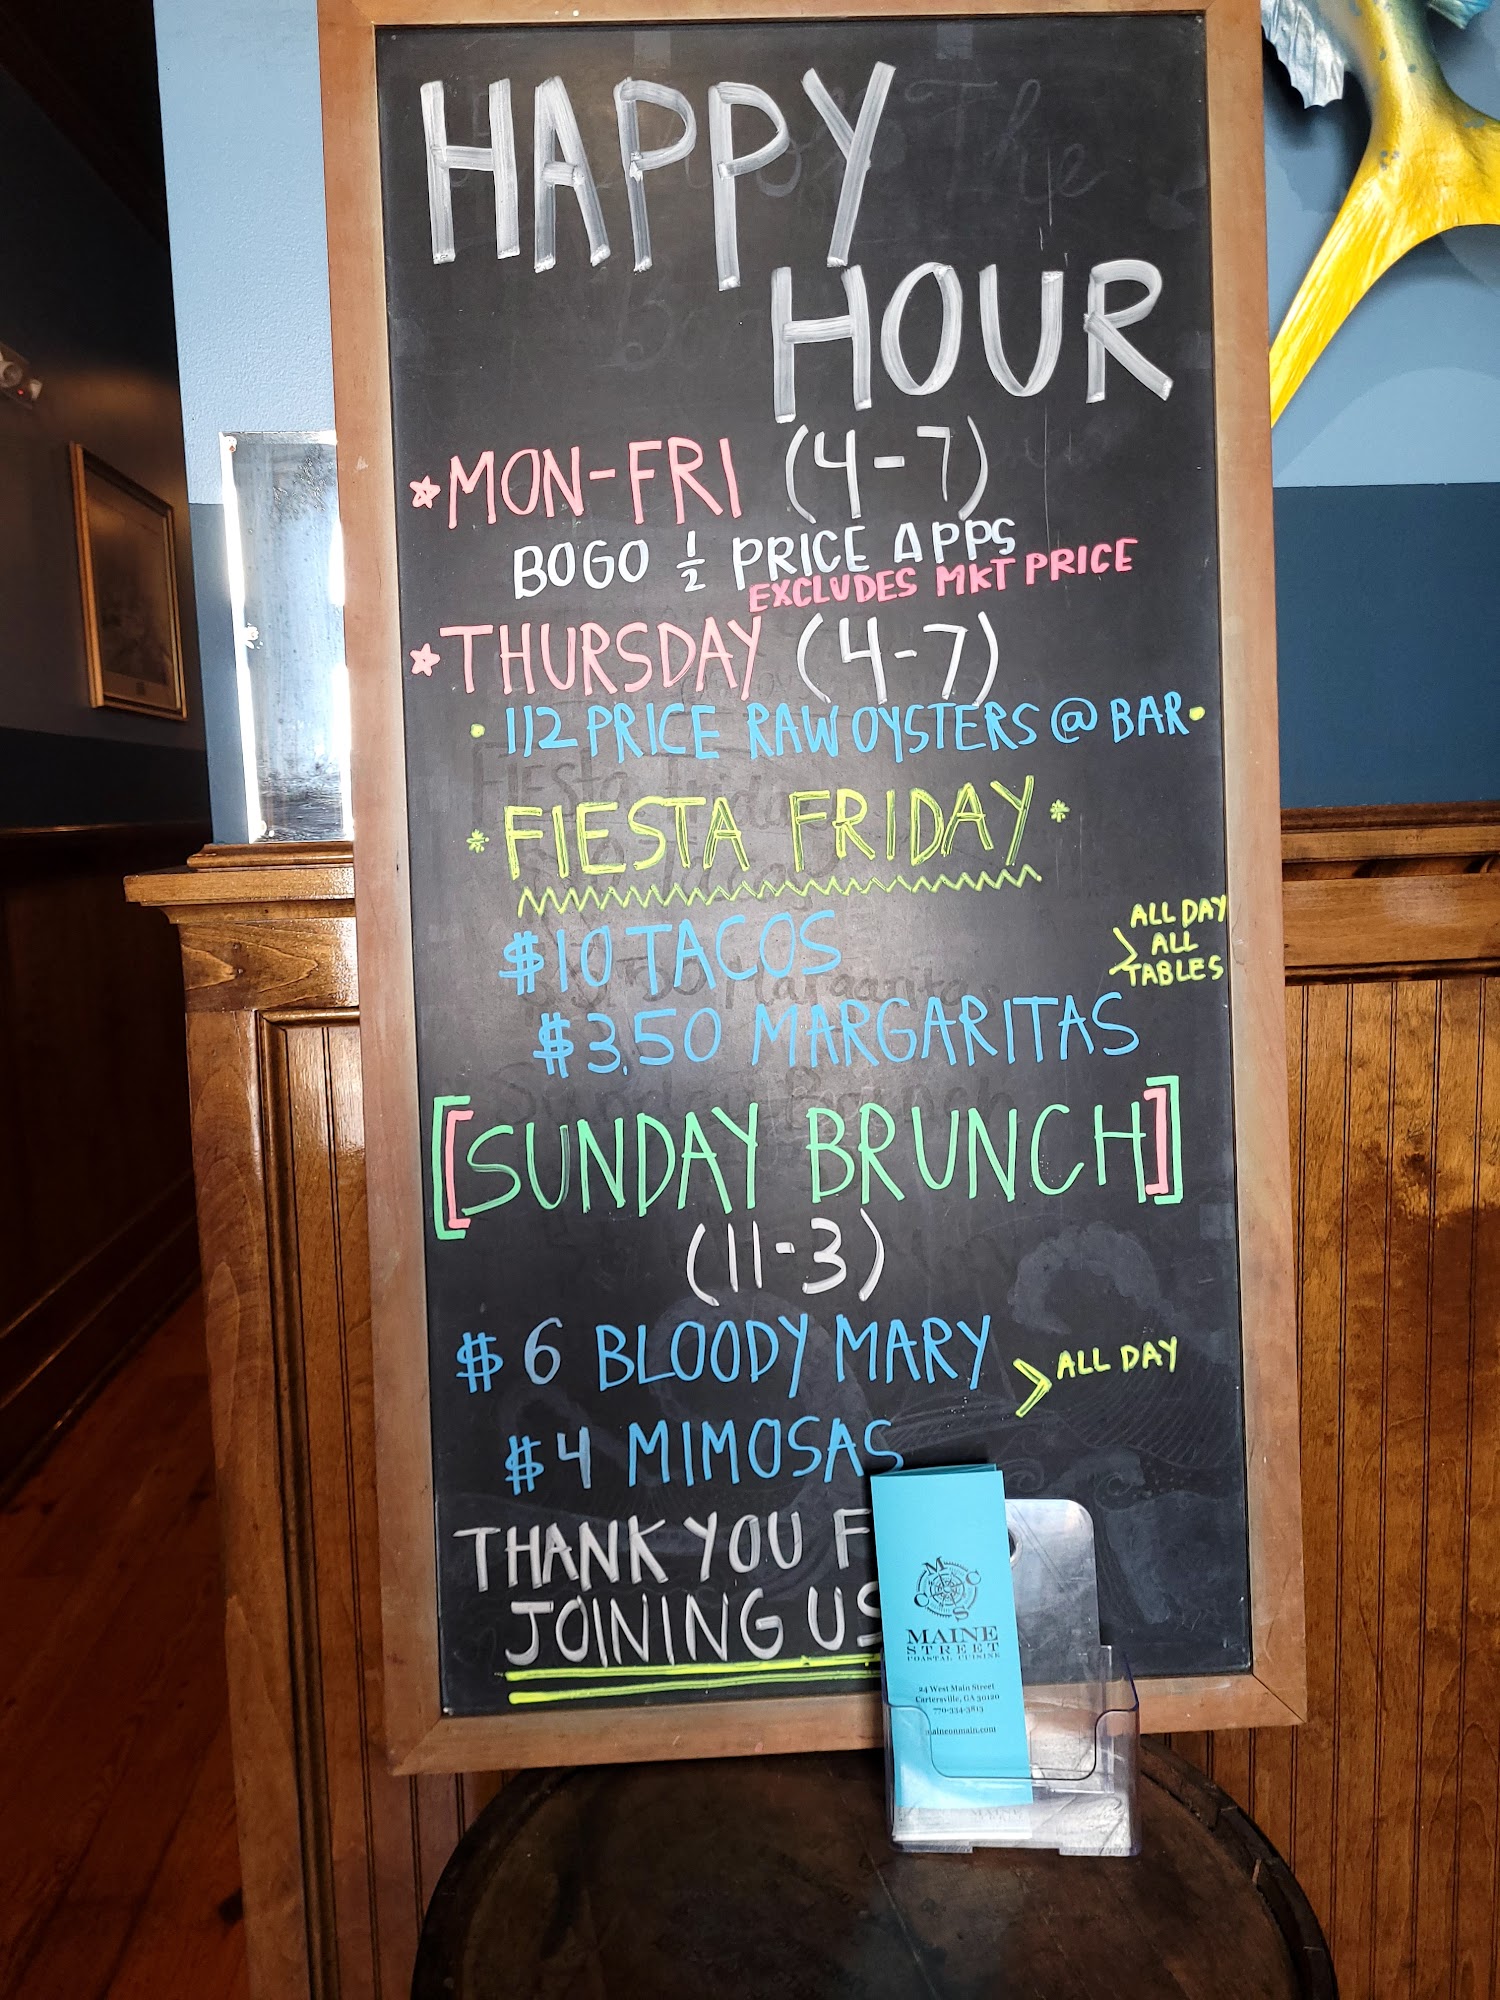 HAPPY
HOUR
MON-FRI (4-7)
BOGO 1/2 PRICE APPS
EXCLUDES MKT PRICE
THURSDAY (4-7)
• 1/2 PRICE RAW OYSTERS @ BAR •
* FIESTA FRIDAY *
$10 TACOS
ALL DAY
> ALL
TABLES
$3.50 MARGARITAS
[[SUNDAY BRUNCH]]
(11-3)
$6 BLOODY MARY
> ALL DAY
$4 MIMOSAS
THANK YOU F
JOINING US
M C S C
MAINE
STREET
COASTAL CUISINE
24 West Main Street
Cartersville, GA 30120
770-334-3813
aineonmain.com